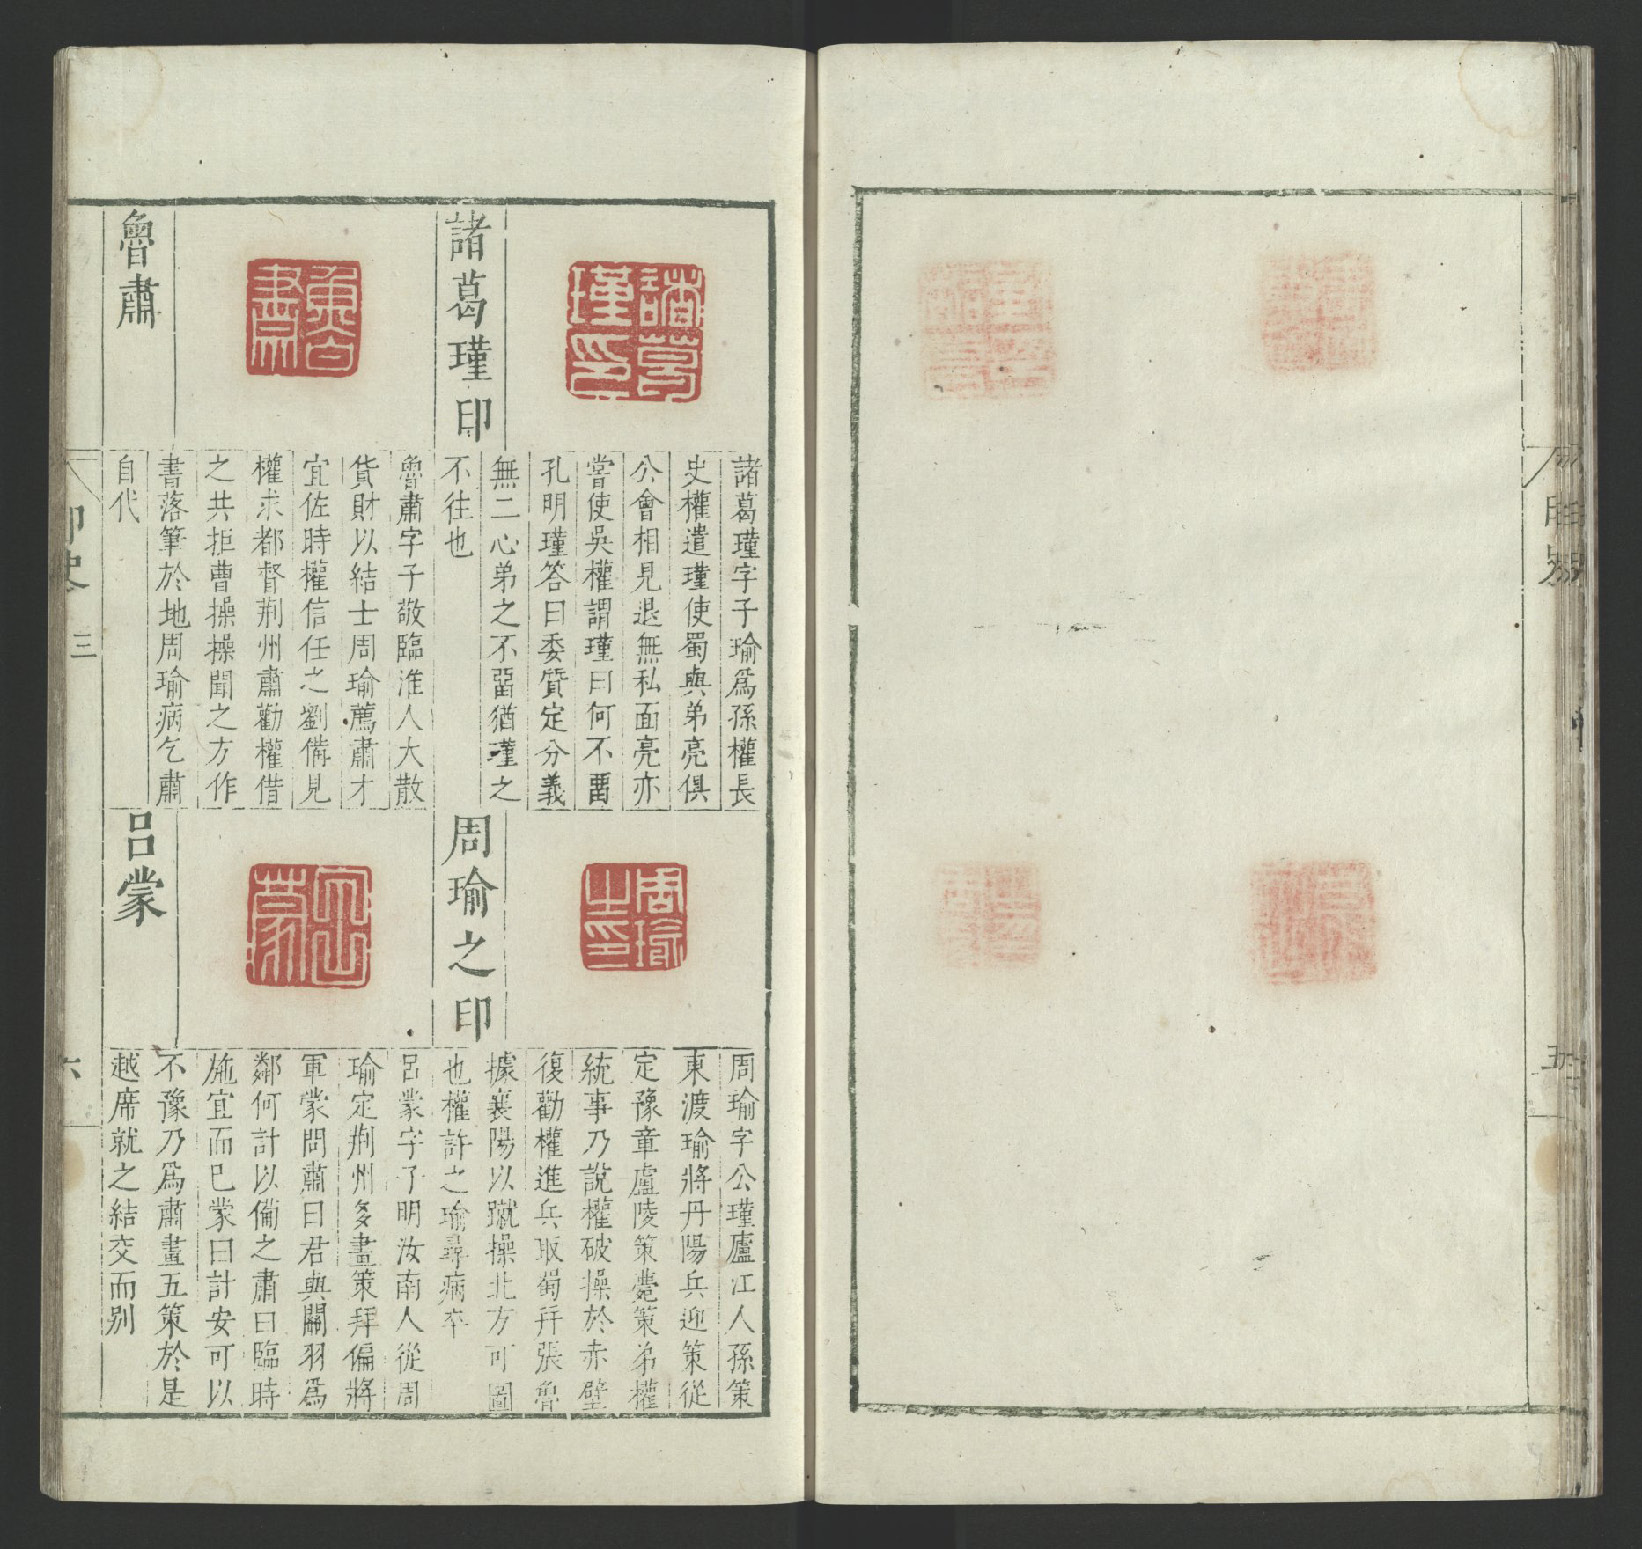 諸葛瑾印
諸葛瑾字子瑜爲孫權長
史權遣瑾使蜀與弟亮俱
公會相見退無私面亮亦
嘗使吳權謂瑾曰何不畱
孔明瑾答曰委質定分義
無二心弟之不畱猶瑾之
不往也
魯肅
魯肅字子敬臨淮人大散
貨財以結士周瑜薦肅才
宜佐時權信任之劉備見
權求都督荊州肅勸權借
之共拒曹操操聞之方作
書落筆於地周瑜病乞肅
自代
周瑜之印
周瑜字公瑾廬江人孫策
東渡瑜將丹陽兵迎策從
定豫章廬陵策薨策弟權
統事乃說權破操於赤壁
復勸權進兵取蜀并張魯
據襄陽以蹴操北方可圖
也權許之瑜尋病卒
呂蒙
呂蒙字子明汝南人從周
瑜定荊州多畫策拜偏將
軍蒙問肅曰君與關羽爲
鄰何計以備之肅曰臨時
施宜而已蒙曰計安可以
不豫乃爲肅畫五策於是
越席就之結交而別
印史 三
六